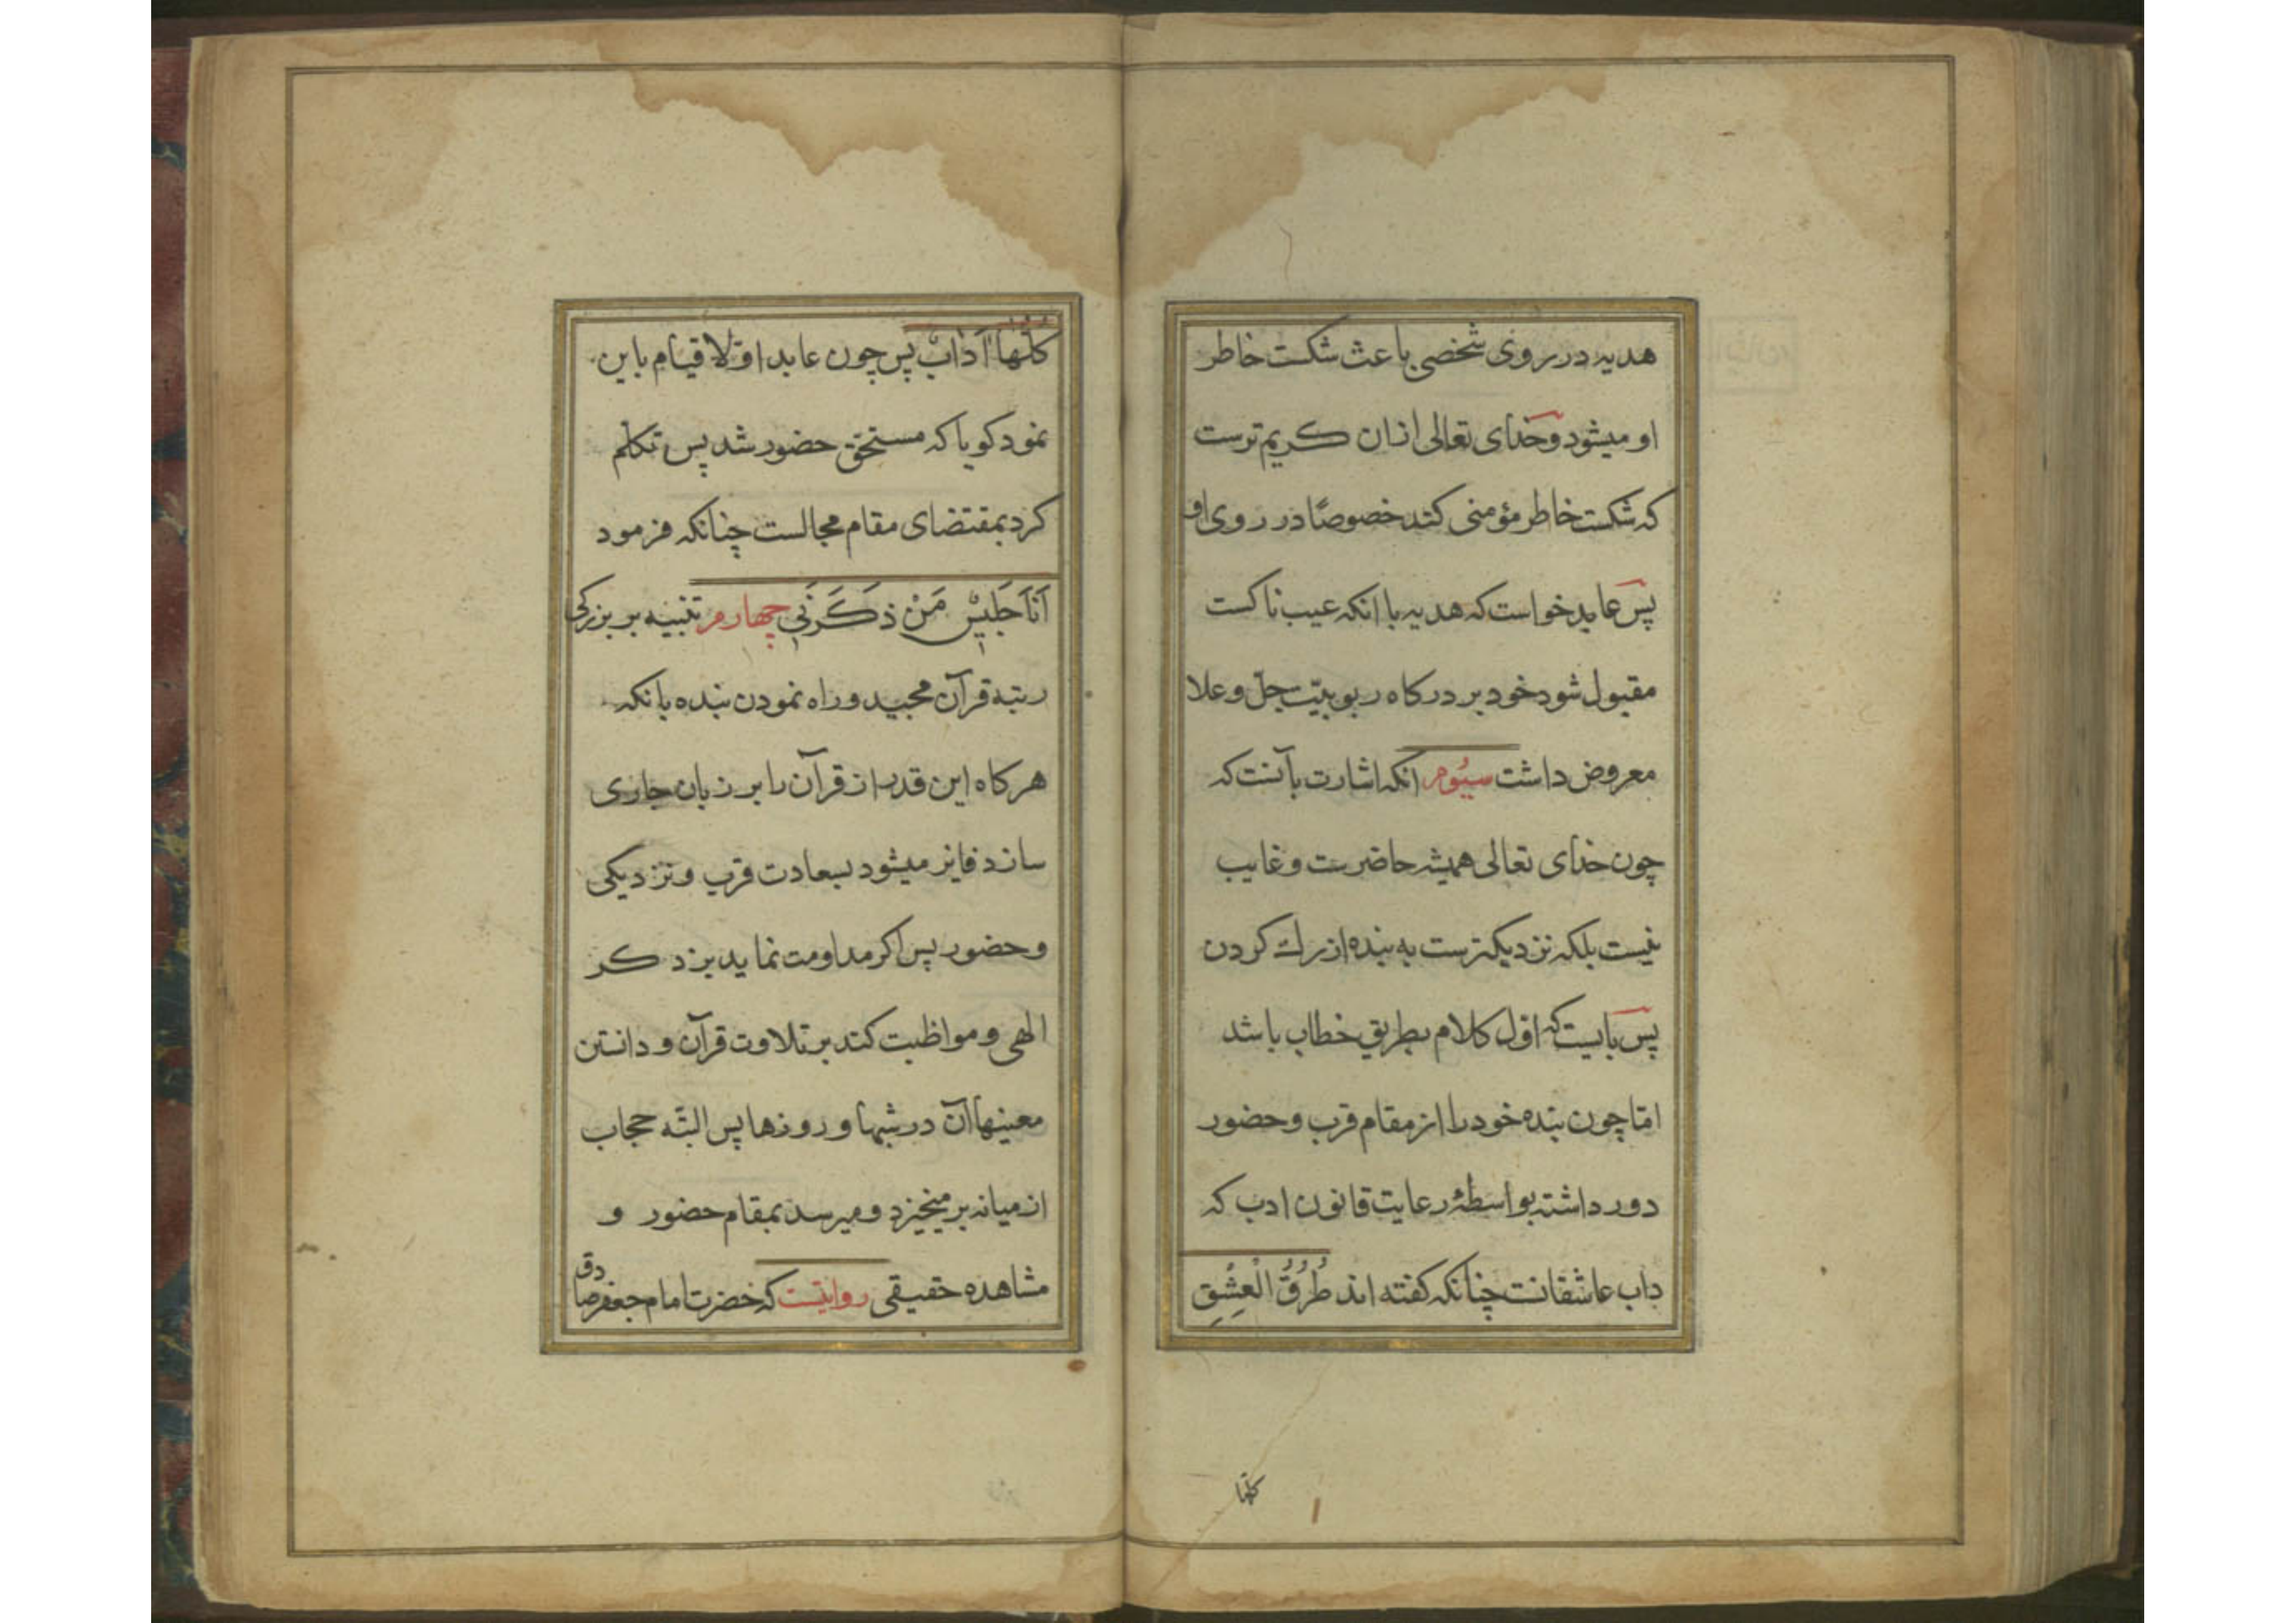 هدیه در روی شخصی باعث شکست خاطر
او میشود و خدای تعالی ازان کریم ترست
که شکست خاطر مؤمنی کند خصوصًا در روی او
پس عابد خواست که هدیه با انکه عیب ناکست
مقبول شود خود بر درکاه ربوبیّت جلّ و علا
معروض داشت سیُوم انکه اشارت بآنست که
چون خدای تعالی همیشه حاضرست و غایب
نیست بلکه نزدیکترست به بنده از رك کردن
پس بایست که اوّل کلام بطریق خطاب باشد
امّا چون بنده خود را از مقام قرب و حضور
دور داشته بواسطهٔ رعایت قانون ادب که
داب عاشقانست چنانکه کفته اند طُرُقُ الْعِشْقِ
کلّها
کلّها اٰدٰابٌ پس چون عابد اوّلا قیام باین
نمود کویا که مستحقّ حضور شد پس تکلّم
کرد بمقتضای مقام مجالست چنانکه فرمود
اَنَا جَلیسُ مَنْ ذَکَرَنی چهارم تنبیه بر بزرکی
رتبهٔ قرآن مجید و راه نمودن بنده بانکه
هرکاه این قدر از قرآن را بر زبان جاری
سازد فایز میشود بسعادت قرب و نزدیکی
و حضور پس اکر مداومت نماید بر ذکر
الهی و مواظبت کند بر تلاوت قرآن و دانستن
معینها آن در شبها و روزها پس البتّه حجاب
از میانه بر میخیزد و میرسد بمقام حضور و
مشاهده حقیقی روایتست که حضرت امام جعفر صادق